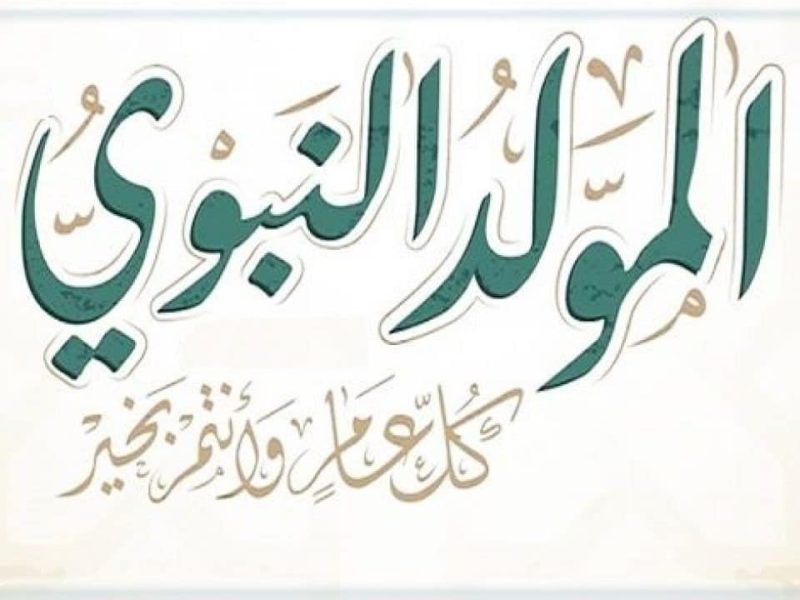 المولد النبوي
كُلُّ عَامٍ وَأَنْتُمْ بِخَيْرٍ